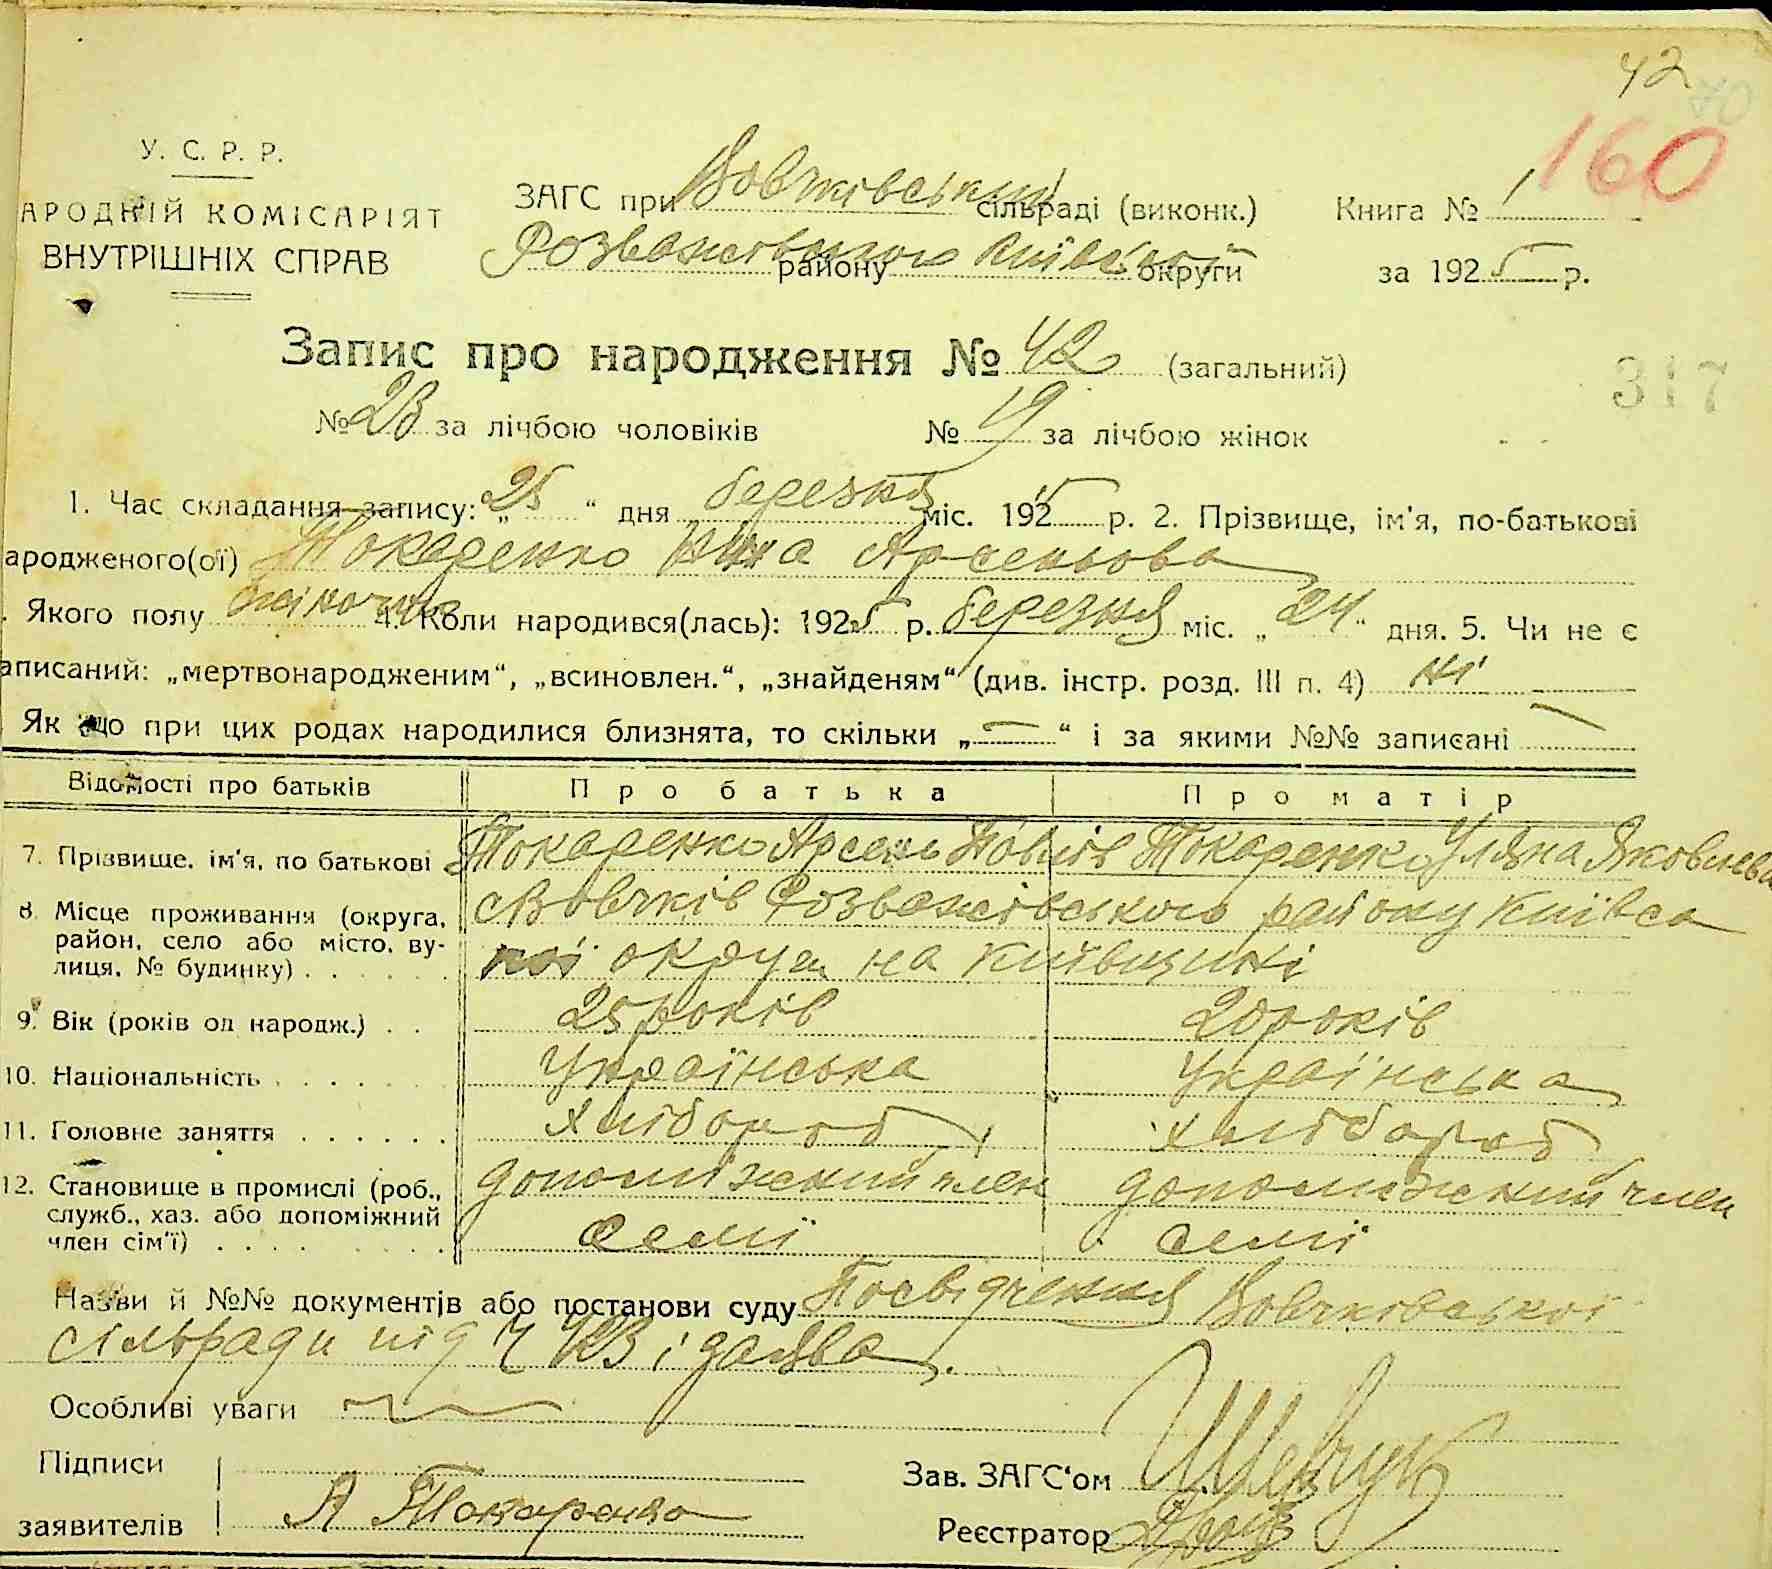 42
160
У. С. Р. Р.
АРОДНІЙ КОМІСАРІЯТ
ВНУТРІШНІХ СПРАВ
ЗАГС при Вовчківський сільраді (виконк.)
Розважівського району Київської округи
Книга № 1
за 1925 р.
Запис про народження № 42 (загальний)
317
№ 23 за лічбою чоловіків № 19 за лічбою жінок
1. Час складання запису: „25“ дня березня міс. 1925 р. 2. Прізвище, ім'я, по-батькові
ародженого(ої) Токаренко Арсеньова
. Якого полу жіночий 4. Коли народився(лась): 1925 р. березня міс. „24“ дня. 5. Чи не є
аписаний: „мертвонародженим“, „всиновлен.“, „знайденям“ (див. інстр. розд. III п. 4) ні
Як що при цих родах народилися близнята, то скільки „—“ і за якими №№ записані —
Відомості про батьків Про батька Про матір
7. Прізвище, ім'я, по батькові Токаренко Арсень Павлів Токаренко Уляна Яковлева
8. Місце проживання (округа, с Вовчків Розважівського району Київсь
район, село або місто, ву-
лиця, № будинку) . . . . . . кої округи на Київщині
9. Вік (років од народж.) . . 25 років 20 років
10. Національність . . . . . . . Українська Українська
11. Головне заняття . . . . . . хлібороб хлібороб
12. Становище в промислі (роб., допоміжний член допоміжний член
служб., хаз. або допоміжний
член сім'ї) . . . . . . . . семї семї
Назви й №№ документів або постанови суду Посвідчення Вовчківської
сільради під ч і заява.
Особливі уваги
Підписи
заявителів А Токаренко
Зав. ЗАГС'ом Шевчук
Реєстратор